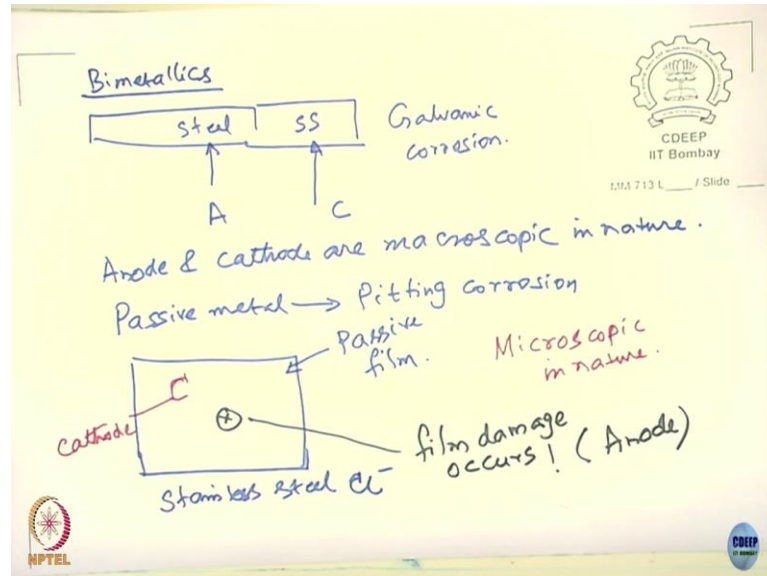 Bimetallics
Steel SS
Galvanic
corrosion.
A C
CDEEP
IIT Bombay
MM 713 L____ / Slide ____
Anode & cathode are macroscopic in nature.
Passive metal → Pitting corrosion
Passive
film.
Microscopic
in nature.
C
cathode
+
film damage
occurs! (Anode)
Stainless steel Cl⁻
NPTEL
CDEEP
IIT BOMBAY